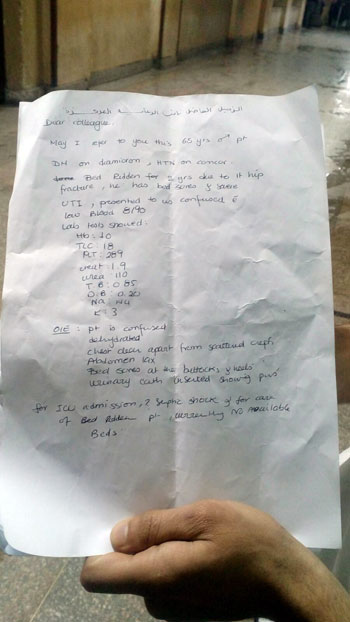 Dear colleague,
May I refer to you this 65 yrs old pt
DM on diamicron, HTN on concor.
Bed Ridden for 2 yrs due to Hip
fracture, he has bed sores &
UTI, presented to us confused c̄
low Blood 8/90
Labs tests showed:
Hb: 10
TLC 18
PLT: 289
creat: 1.9
urea: 110
T.B: 0.85
D.B: 0.20
Na:
K: 3
O/E: pt is confused
dehydrated
chest clear apart from scattered creps
Abdomen lax
Bed sores at the buttocks, heels
urinary cath inserted showing pus
for ICU admission, ? Septic shock & for care
of Bed Ridden pt, currently no available
Beds